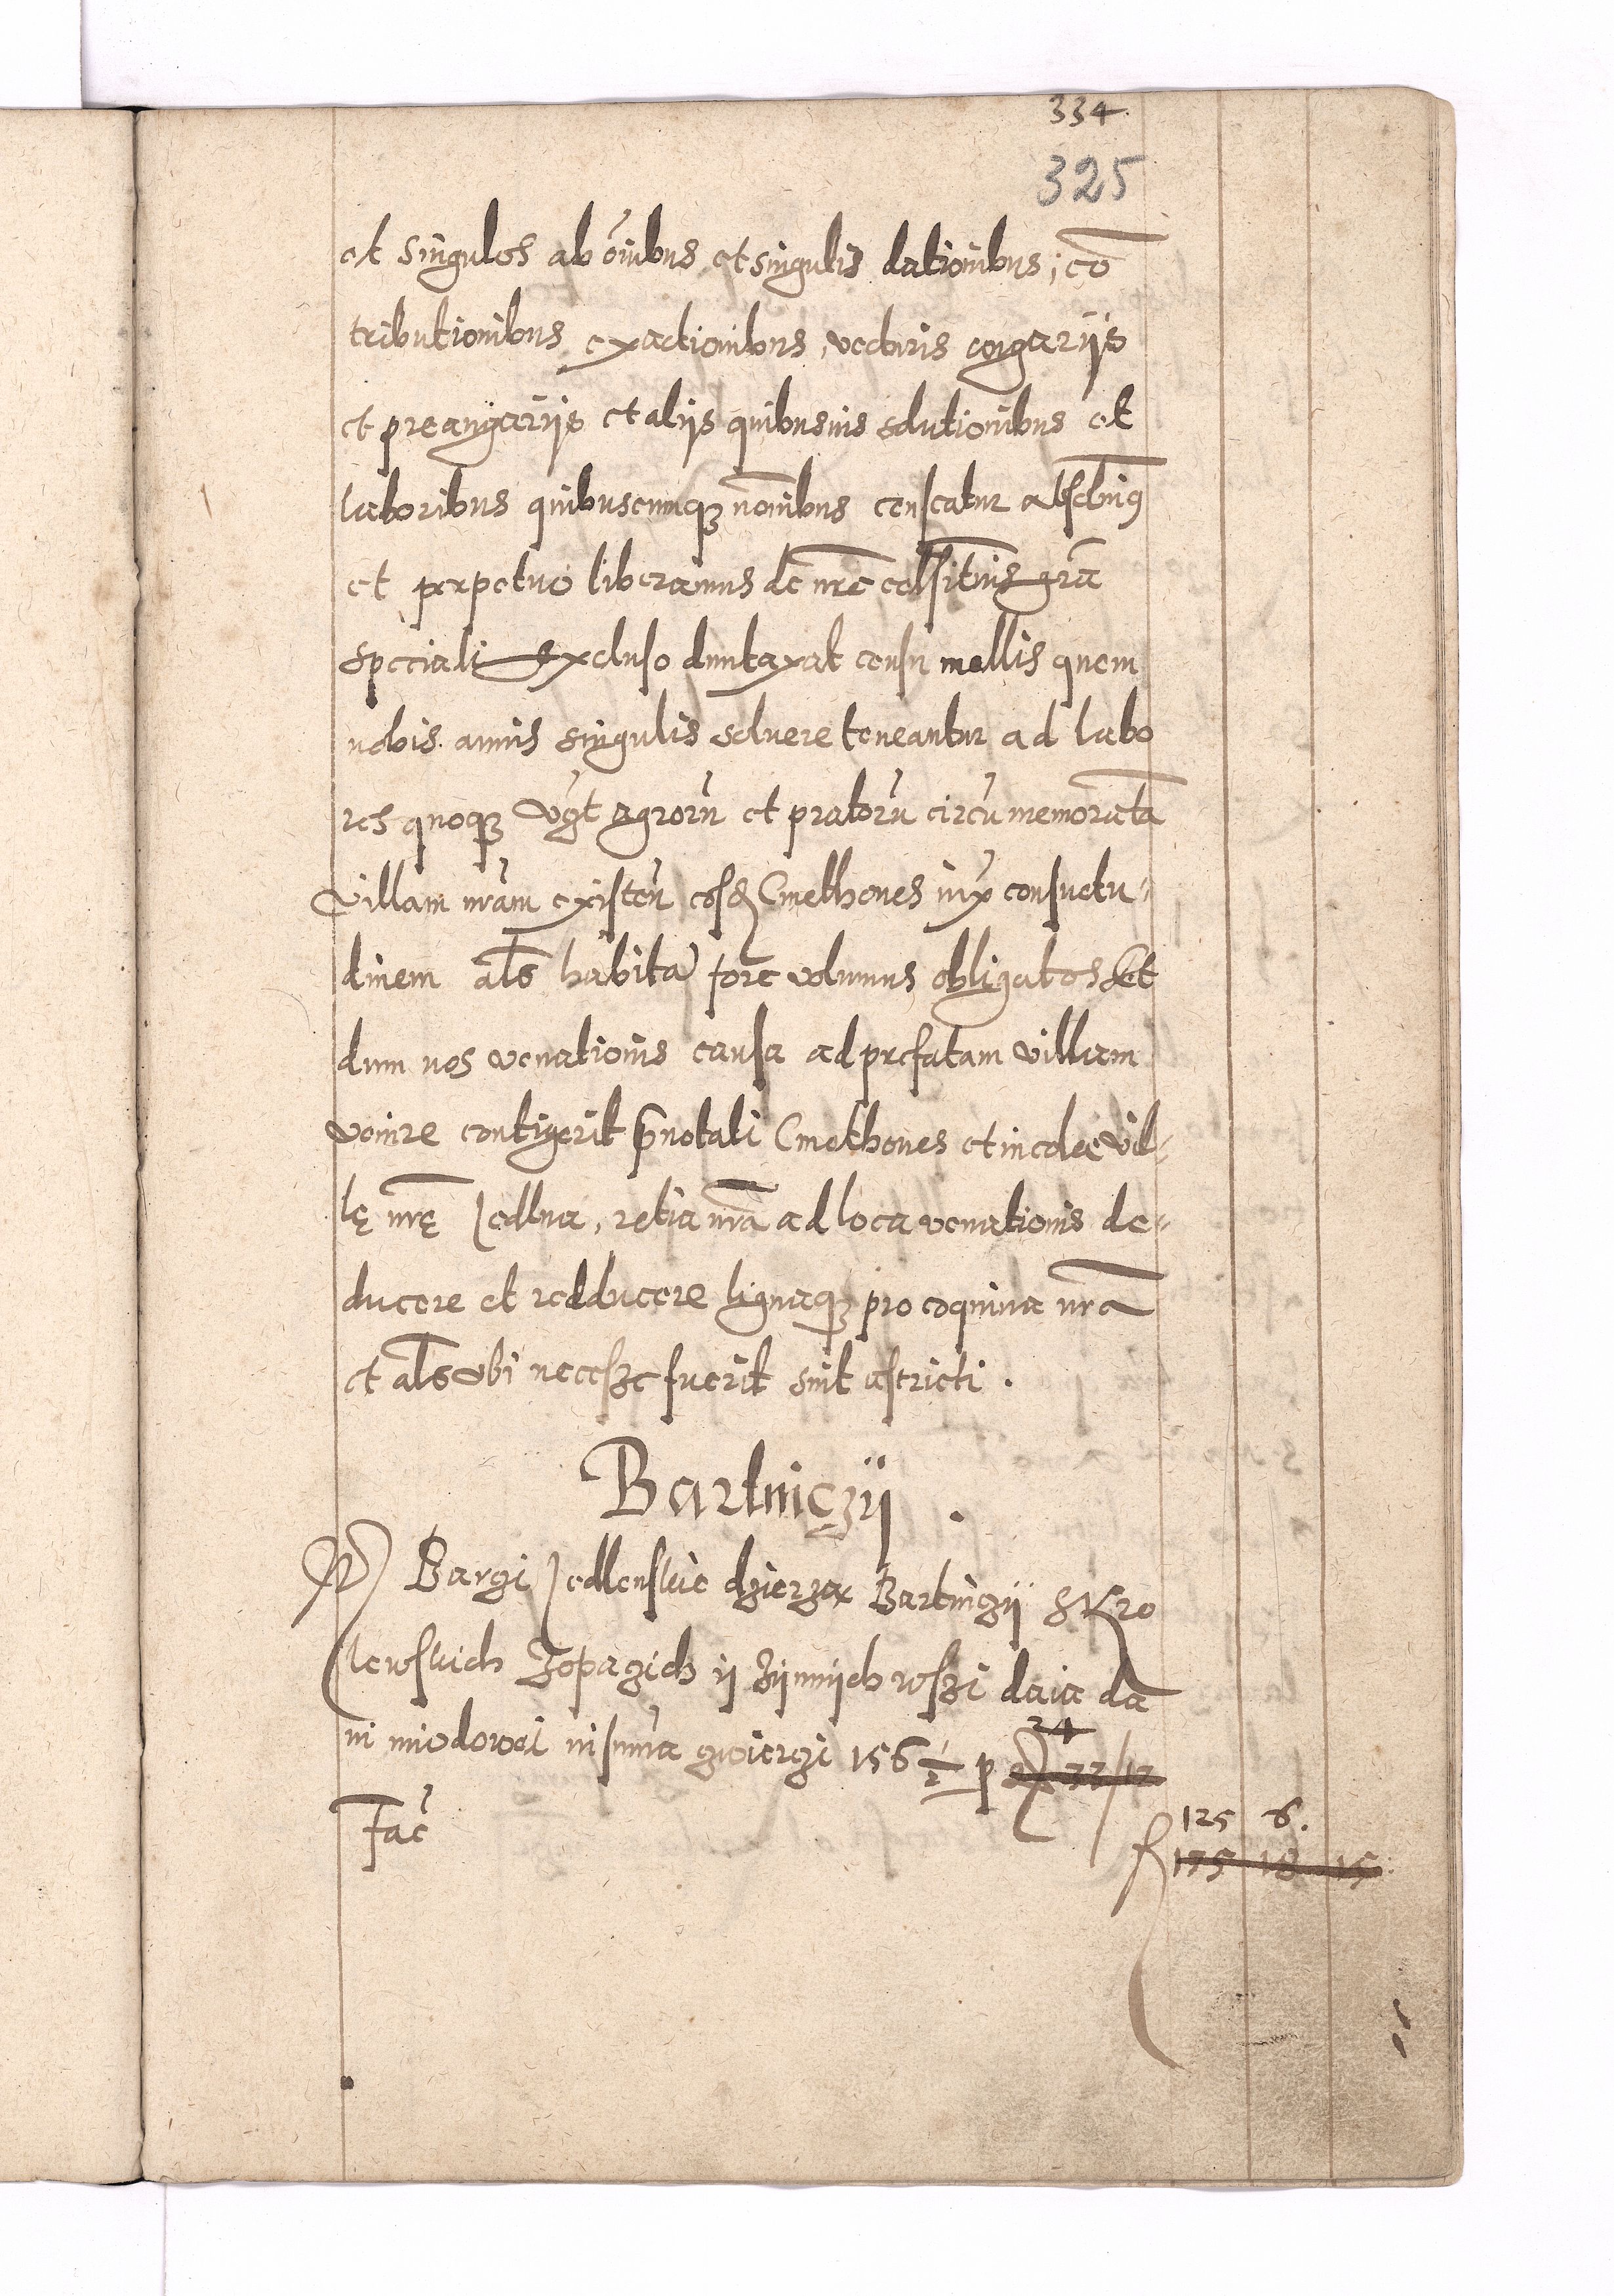 334
325
et singulos ab oĩnibus et singulis dationibus, cō
tributionibus exactionibus, vecturis angariÿs
et preangarÿs et alÿs quibusuis solutionibus et
laboribus quibuscunqꝫ noĩnibus censeatur
et perpetuo liberamus de nr̃e celsitnis gra͂
speciali excluso duntaxat censu mellis quem
nobis annis singulis soluere teneantur ad labo
res quoqꝫ vg̃t agrorũ et pratorũ circũ memorata͂
villam nr̃am existeñ eosd Cmethones iux consuetu-
dinem al̃s habita͂ fore volumus obligatos Et
dum nos venationis causa ad prefatam villam
venire contigerit p̃notati Cmethones et incolæ vil-
lę nr̃ę Jedlna, retia nr̃a ad loca venationis de-
ducere et redducere lignaqꝫ pro coquina nr̃a
et al̃s vbi necesze fuerit sint astricti.
Bartniczÿ.
W Barzi Jedlenskie dzierza Bartniczÿ s Kro
lewskich Zopazich ÿ Zÿnnÿch wszi daia da
ni miodowei in sum̃a zwierzi 156 1/2 p
24
Fac̃
125 6.
175 18 15